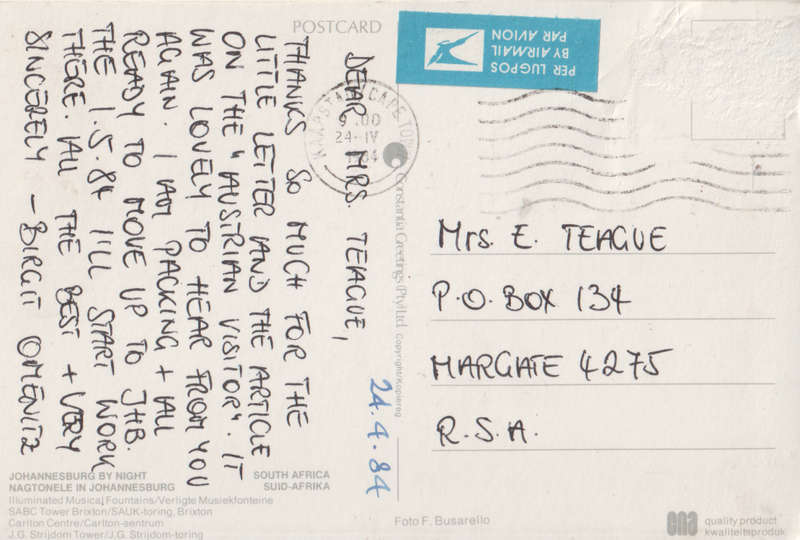 POSTCARD
PER LUGPOS
BY AIRMAIL
PAR AVION
KAAPSTAD CAPE TOWN
24-IV
84
DEAR MRS. TEAGUE,
THANKS SO MUCH FOR THE
LITTLE LETTER AND THE ARTICLE
ON THE "AUSTRIAN VISITOR". IT
WAS LOVELY TO HEAR FROM YOU
AGAIN. I AM PACKING + ALL
READY TO MOVE UP TO JHB.
THE 1.5.84 I'LL START WORK
THERE. ALL THE BEST + VERY
SINCERELY – BIRGIT OMENITZ
24.4.84
Mrs. E. TEAGUE
P.O. BOX 134
MARGATE 4275
R.S.A.
Constantia Greetings (Pty) Ltd. Copyright/Kopiereg
JOHANNESBURG BY NIGHT SOUTH AFRICA
NAGTONELE IN JOHANNESBURG SUID-AFRIKA
Illuminated Musical Fountains/Verligte Musiekfonteine
SABC Tower Brixton/SAUK-toring, Brixton
Carlton Centre/Carlton-sentrum
J.G. Strijdom Tower/J.G. Strijdom-toring
Foto F. Busarello
cna quality product
kwaliteitsproduk